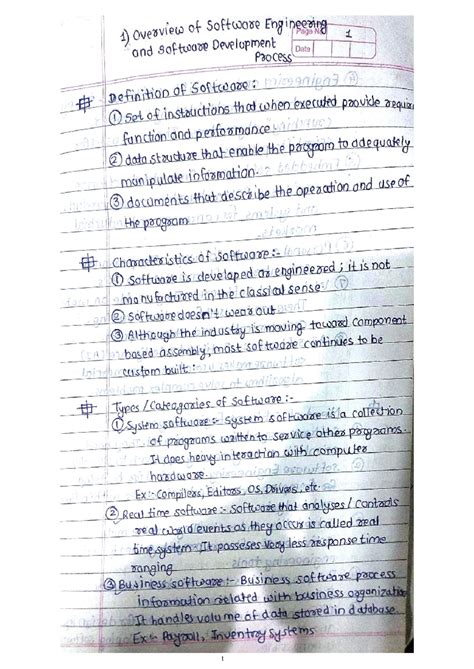 1) Overview of Software Engineering
and Software Development
Process
Page No. 1
Date
Definition of Software :-
① Set of instructions that when executed provide requir
function and performance
② data structure that enable the program to adequately
manipulate information.
③ documents that describe the operation and use of
the program
Characteristics of Software :-
① Software is developed or engineered ; it is not
manufactured in the classical sense
② Software doesn't wear out
③ Although the industry is moving toward component
based assembly, most software continues to be
custom built.
Types / Categories of Software :-
① System software :- System software is a collection
of programs written to service other programs.
It does heavy interaction with computer
hardware.
Ex :- Compilers, Editors, OS, Drivers, etc.
② Real time software :- Software that analyses / Controls
real world events as they occur is called real
time system. It posseses very less response time
ranging
③ Business software :- Business software process
information related with business organization
It handles volume of data stored in database.
Ex :- Payroll, Inventry Systems
1